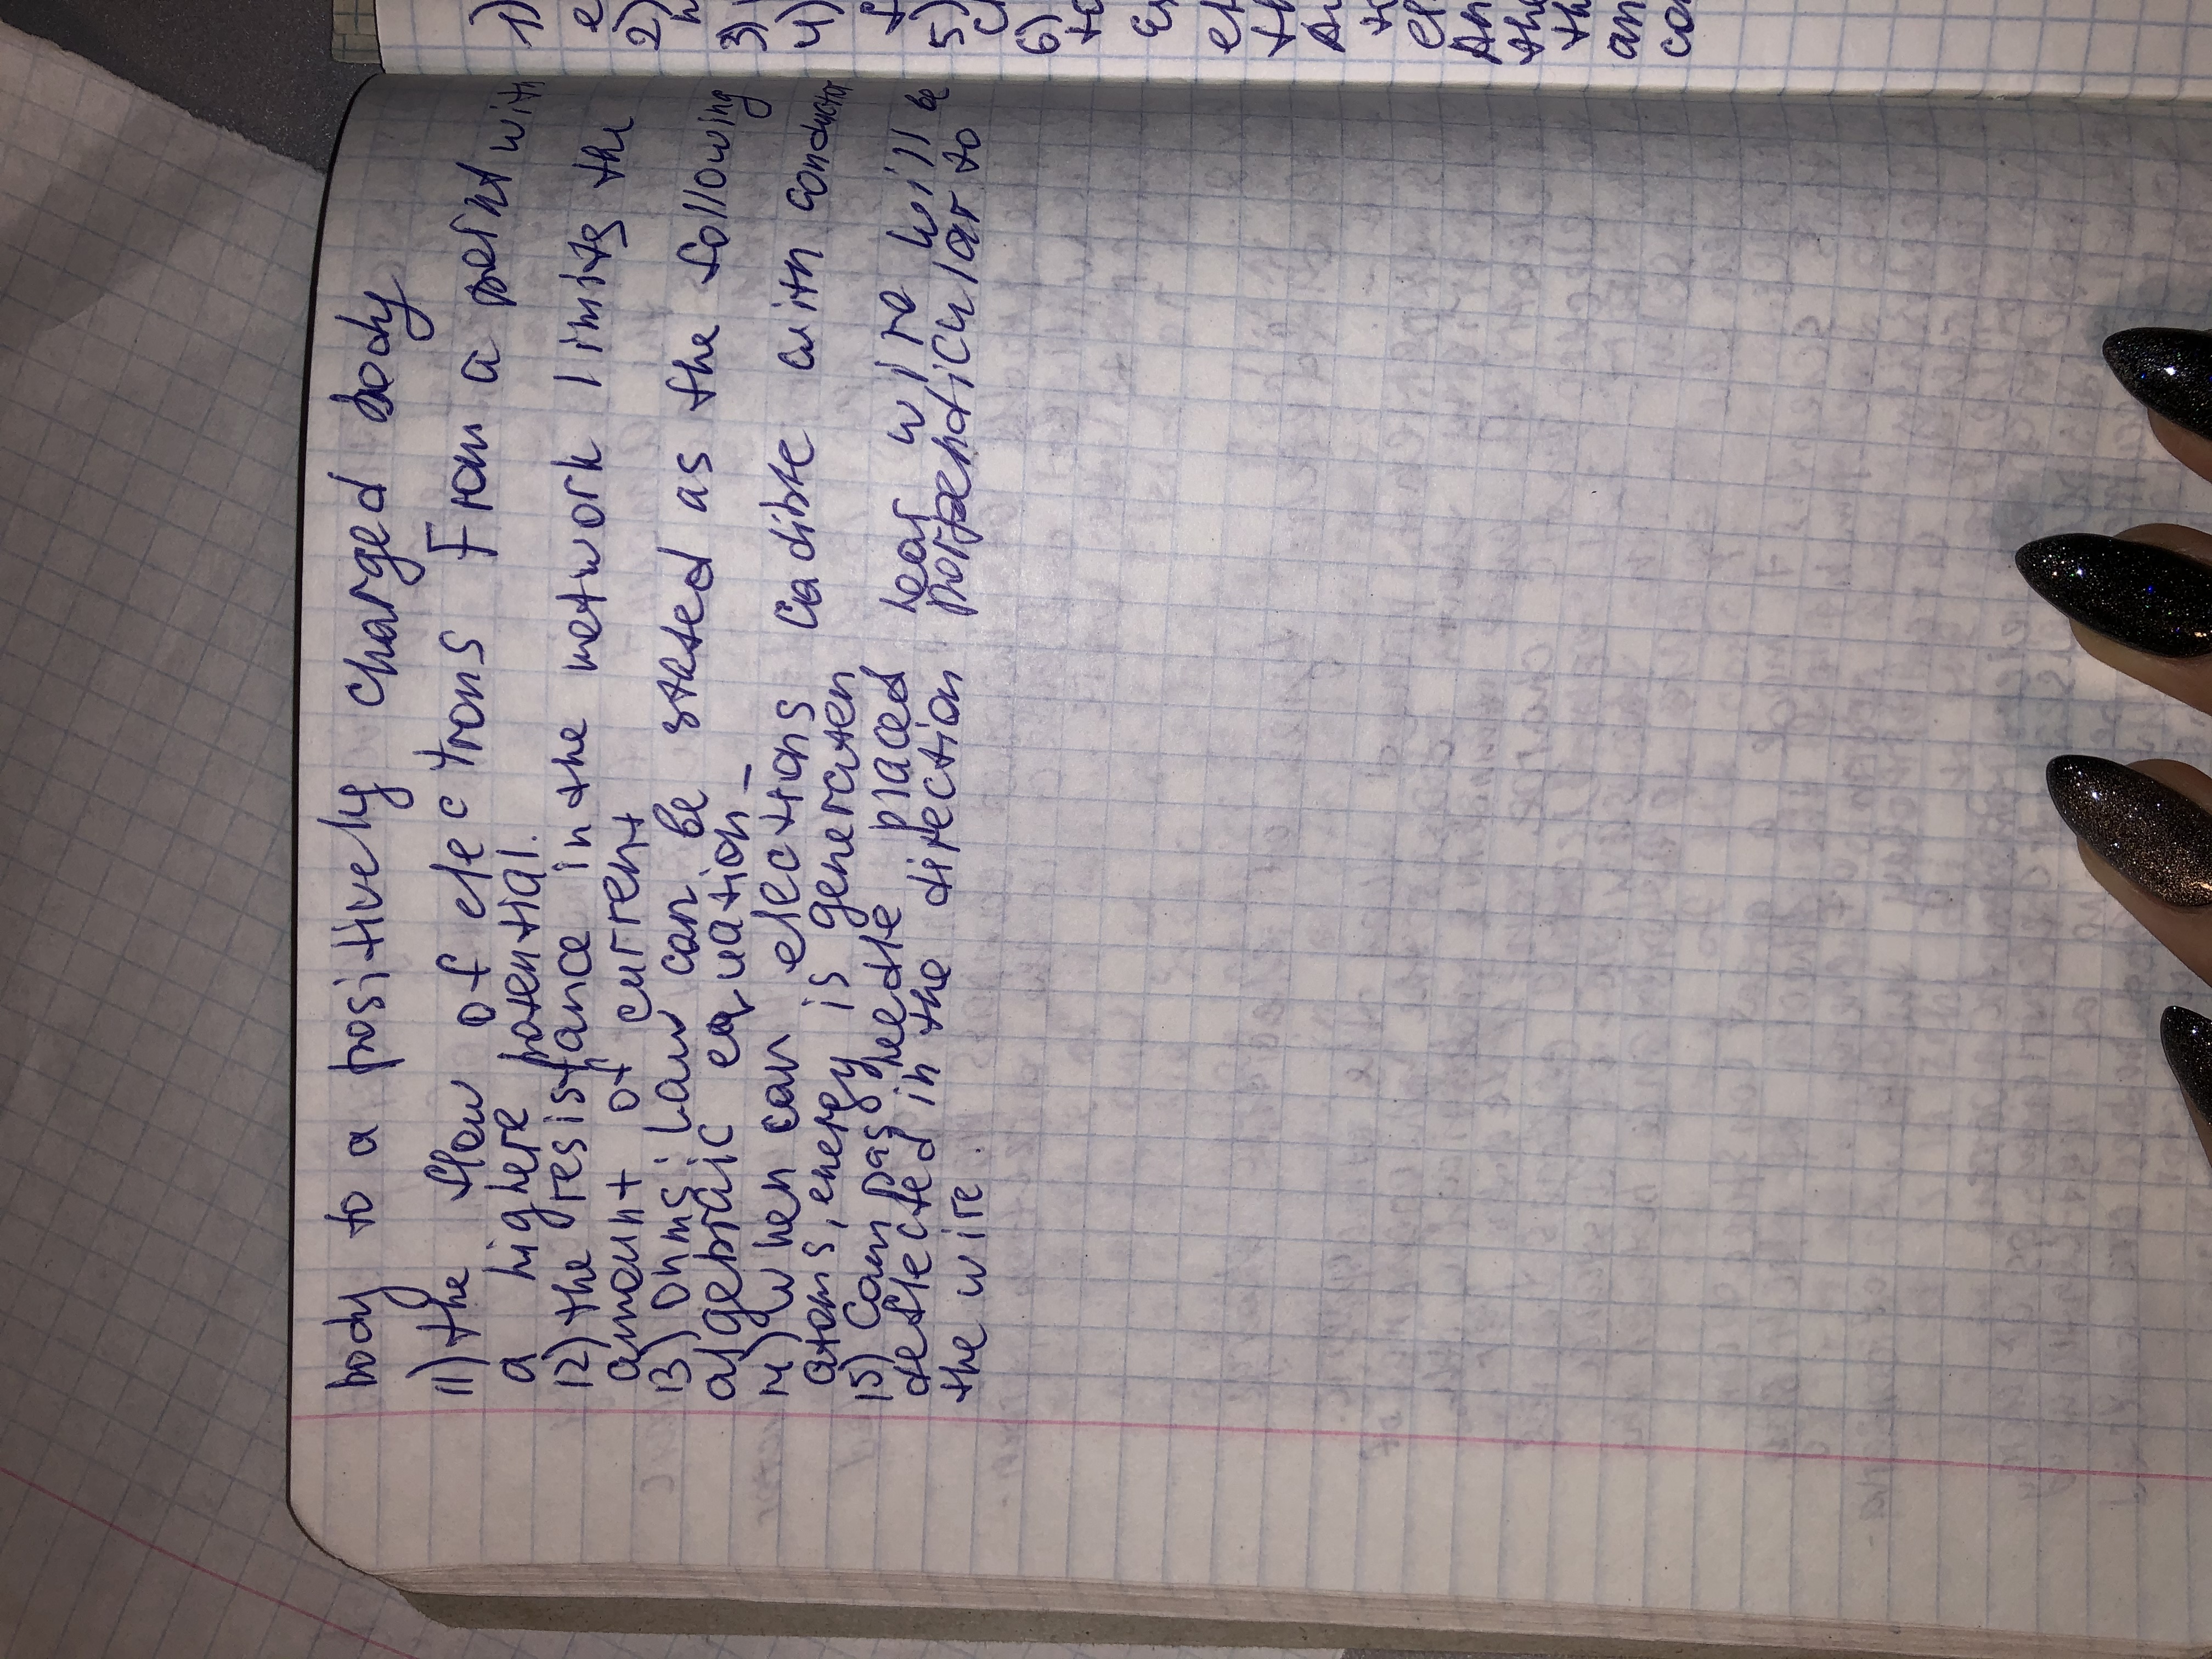 body to a positively charged body
11) the flow of electrons From a point with
a highere potential.
12) the resistance in the network limits the
amount of current
13) Ohms; Law can be stated as the following
algebraic equation –
14) when can elections cadibte with conductor
atoms, energy is generaten
15) Compas needle placed near wire will be
deflected in the direction porpendicular to
the wire.
1)
e
2)
3)
4)
5)
6)
to
et
th
to
el
An
the
th
an
con